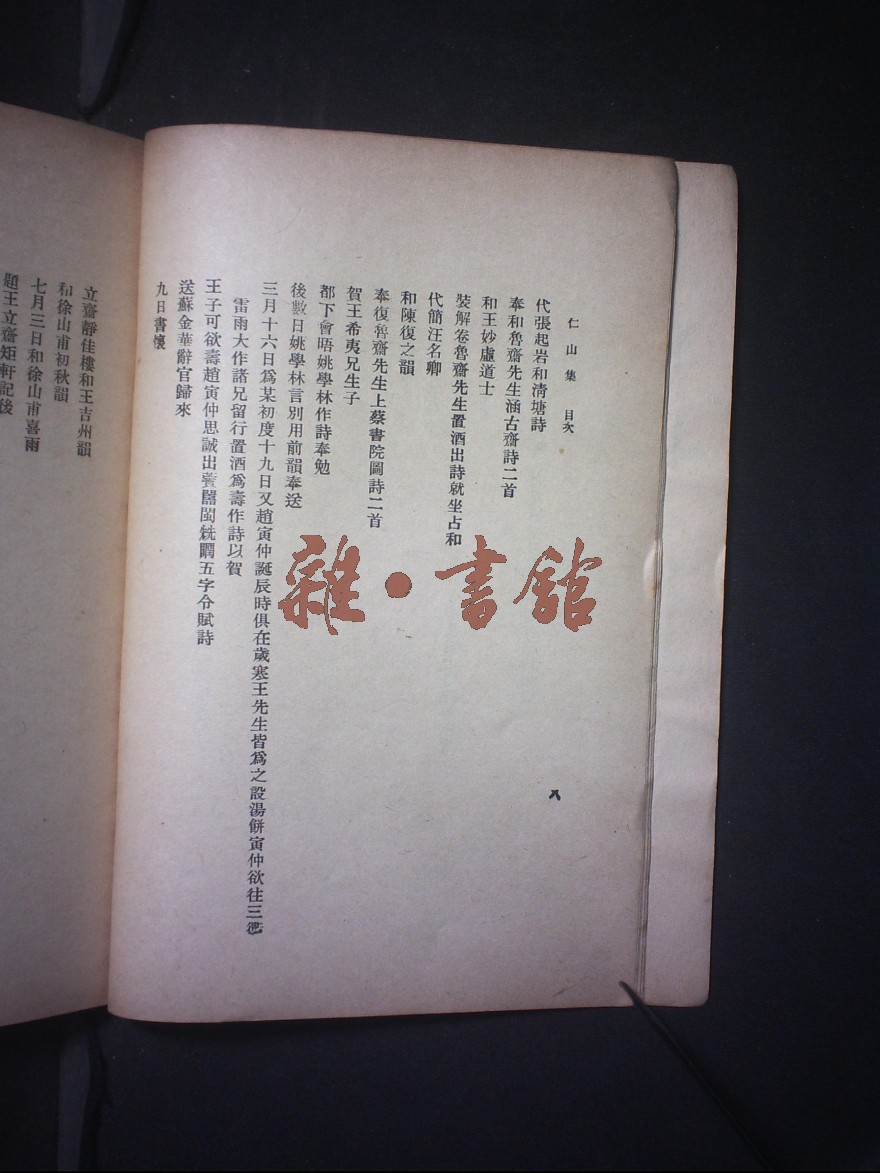 仁山集 目次
八
代張起岩和清塘詩
奉和魯齋先生涵古齋詩二首
和王妙虛道士
裝解卷魯齋先生置酒出詩就坐占和
代簡汪名卿
和陳復之韻
奉復魯齋先生上蔡書院圖詩二首
賀王希夷兄生子
都下會晤姚學林作詩奉勉
後數日姚學林言別用前韻奉送
三月十六日爲某初度十九日又趙寅仲誕辰時俱在歲寒王先生皆爲之設湯餅寅仲欲往三衢
雷雨大作諸兄留行置酒爲壽作詩以賀
王子可欲壽趙寅仲思誠出
五字令賦詩
送蘇金華辭官歸來
九日書懷
立齋靜佳樓和王吉州韻
和徐山甫初秋韻
七月三日和徐山甫喜雨
題王立齋矩軒記後
雜·書館